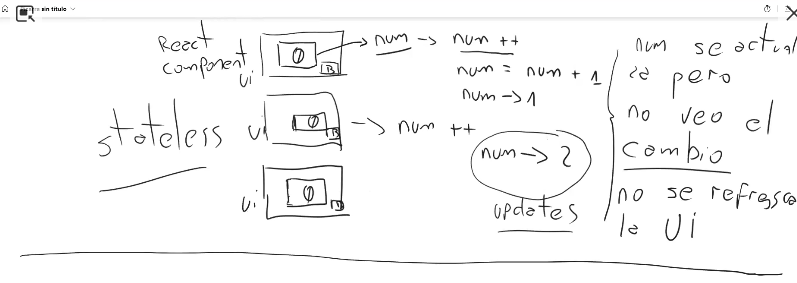 sin título
React
component
ui
0
B
num -> num ++
num = num + 1
num -> 1
stateless
ui
0
B
-> num ++
num -> 2
updates
ui
0
B
num se actual
iza pero
no veo el
cambio
no se refresca
la UI